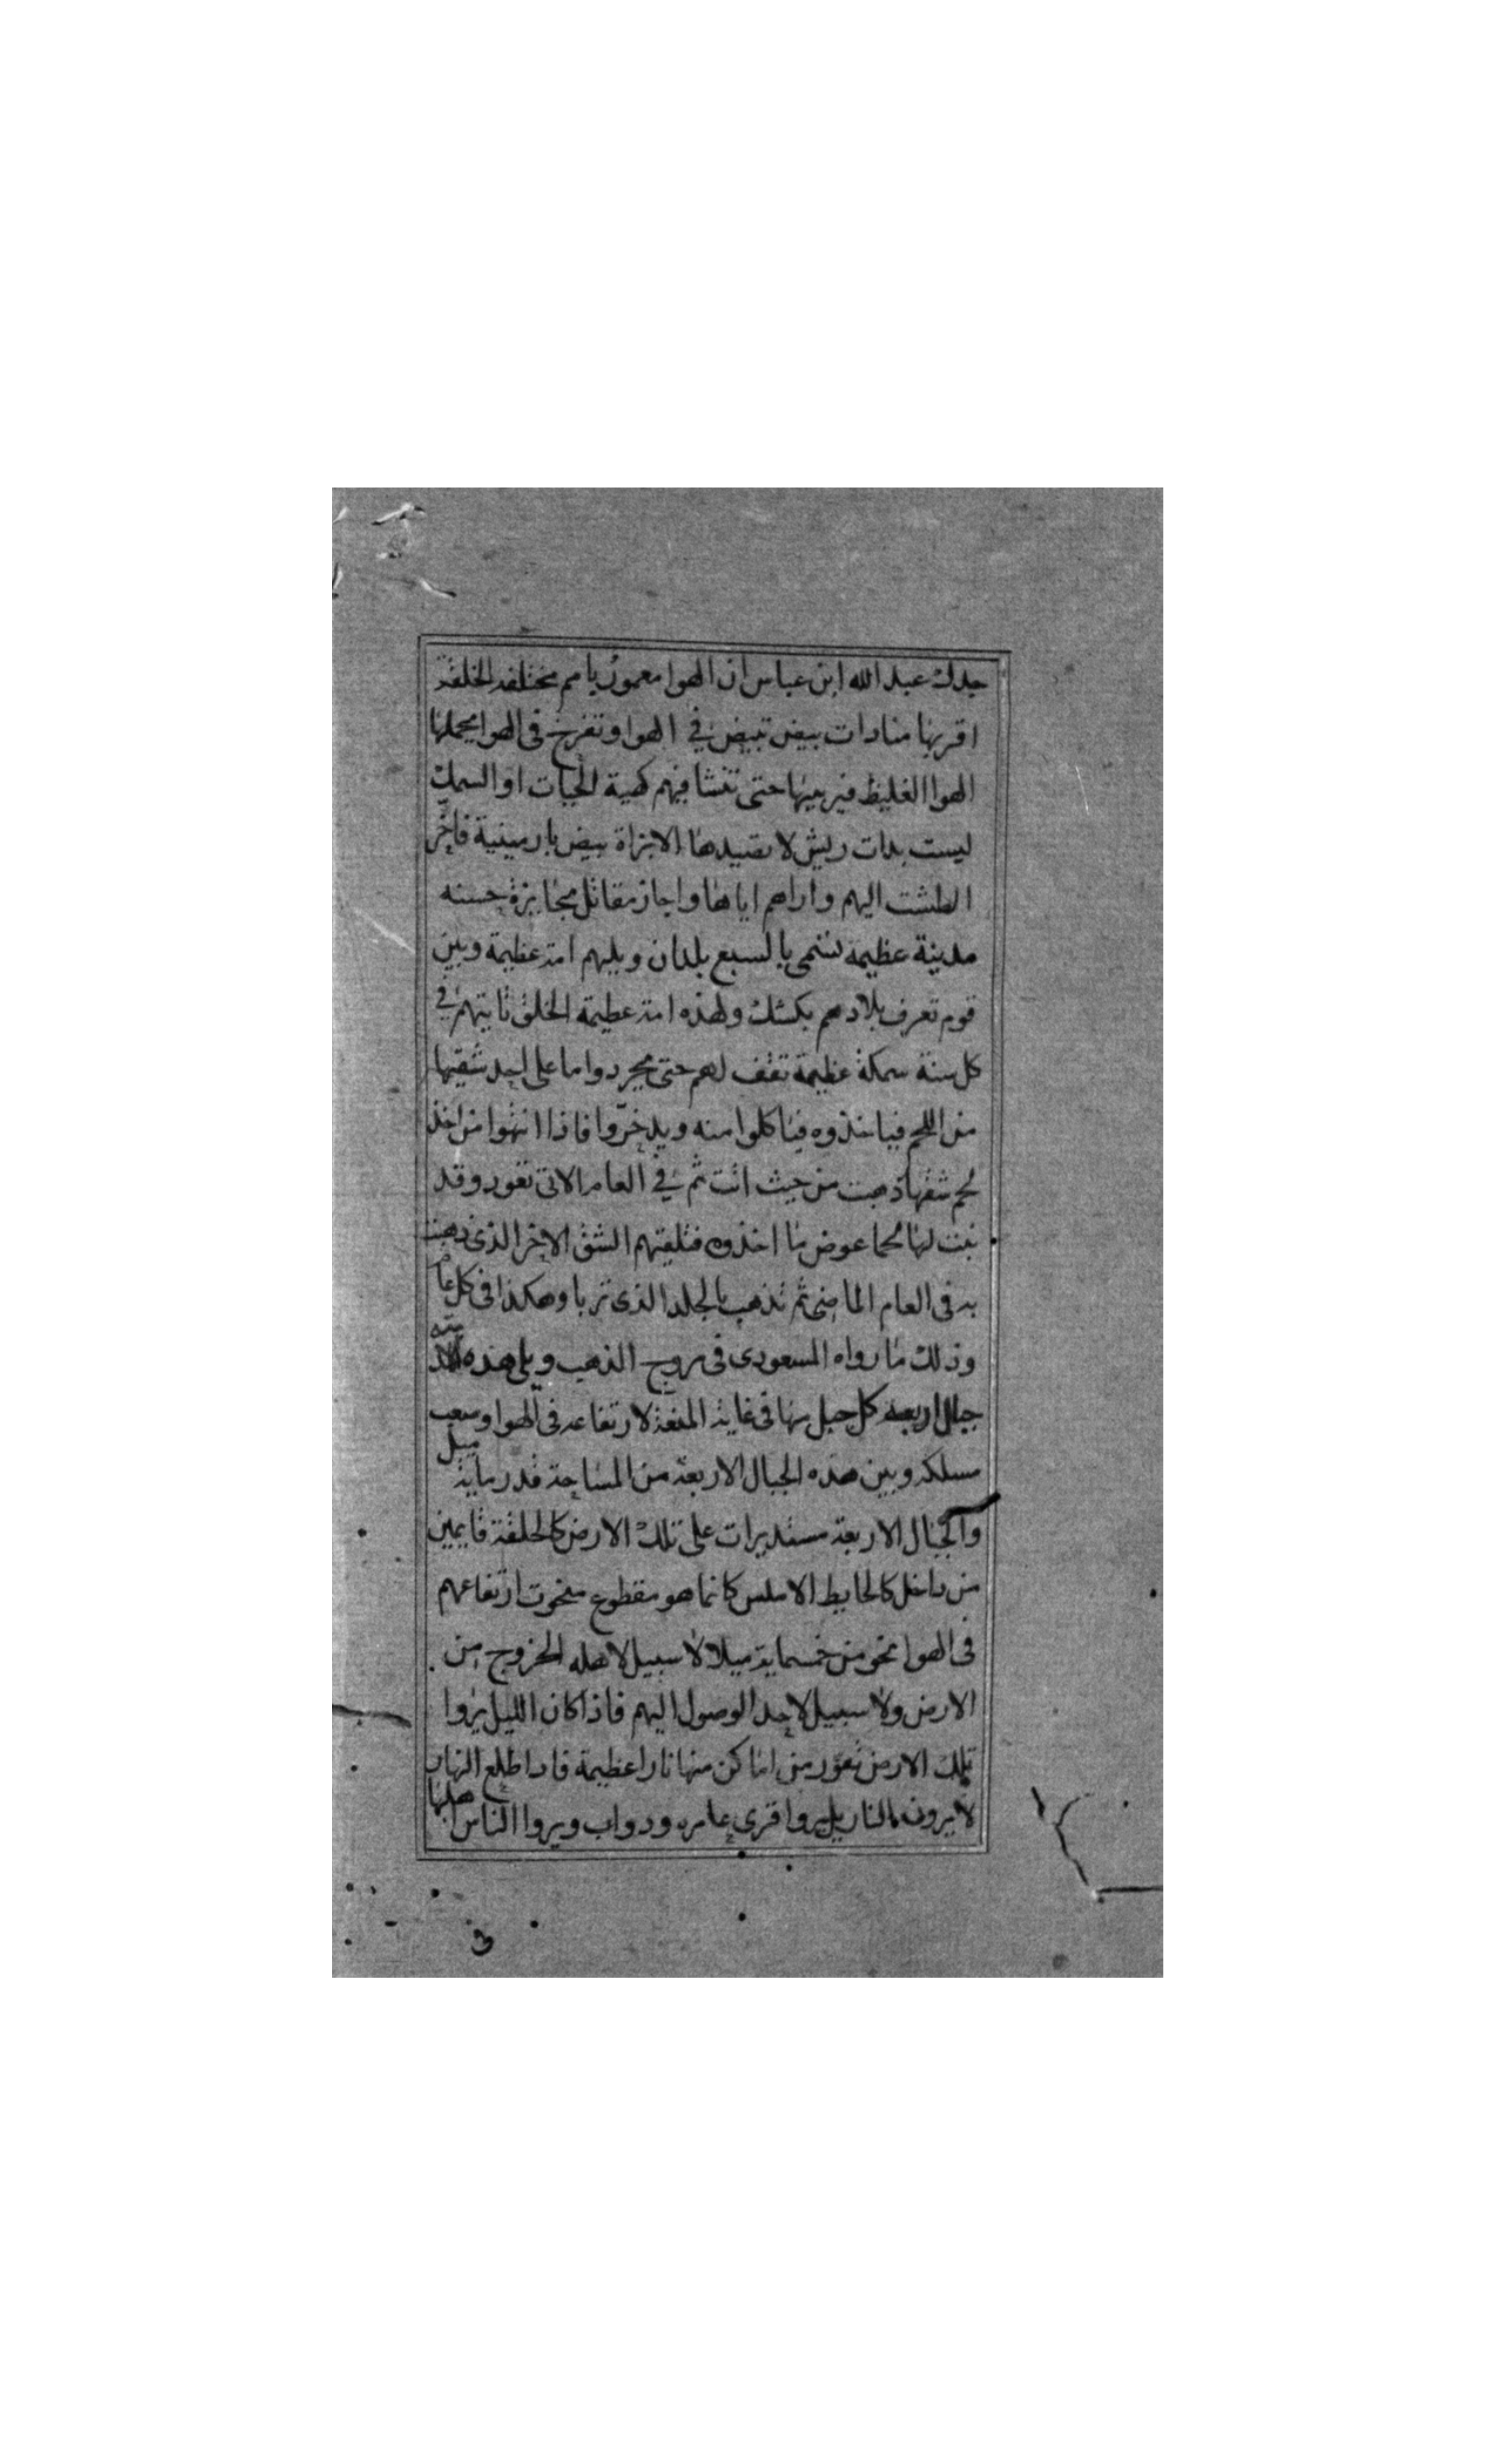 جدك عبد الله ابن عباس ان الهوا معمور بامم مختلفه الخلقة
اقربها منا دات بيض تبيض في الهوا وتفرخ في الهوا يحملها
الهوا الغليظ فيربيها حتى تنشا فيهم كهية الحيات او السمك
ليست بدات ريش لا تصيدها الا بزاة بيض بارمينية فاخرج
الطشت اليهم واراهم اياها واجاز مقاتل بجايزة حسنه
مدينة عظيمة تسمى بالسبع بلدان ويليهم امة عظيمة وبين
قوم تعرف بلادهم بكشك ولهذه امة عظيمة الخلق تاتيهم في
كل سنة سمكة عظيمة تقف لهم حتى يجردوا ما على احد شقيها
من اللحم فياخذوه فياكلوا منه ويدخروا فاذا انتهوا من اخذ
لحم شقها ذهبت من حيث اتت ثم في العام الاتي تعود وقد
نبت لها لحما عوض ما اخذوه فتلقيهم الشق الاخر الذي ذهبت
به في العام الماضي ثم تذهب بالجلد الذي تربا وهكذا في كل عام
وذلك ما رواه المسعودي في مروج الذهب ويلي هذه الامة
جبال اربعه كل جبل منها في غاية المنعة لارتفاعه في الهوا وصعب
مسلكه وبين هذه الجبال الاربعة من المساحة قدر ماية ميل
والجبال الاربعة مستديرات على تلك الارض كالحلقة قايمين
من داخل كالحايط الاملس كانما هو مقطوع منحوت ارتفاعهم
في الهوا نحو من خمسماية ميلا لا سبيل لاهله الخروج من
الارض ولا سبيل لاحد الوصول اليهم فاذا كان الليل يروا
تلك الارض تفور من اماكن منها نارا عظيمة فادا طلع النهار
لا يرون بالنار بل يروا قرى عامره ودواب ويروا الناس اهلها
في